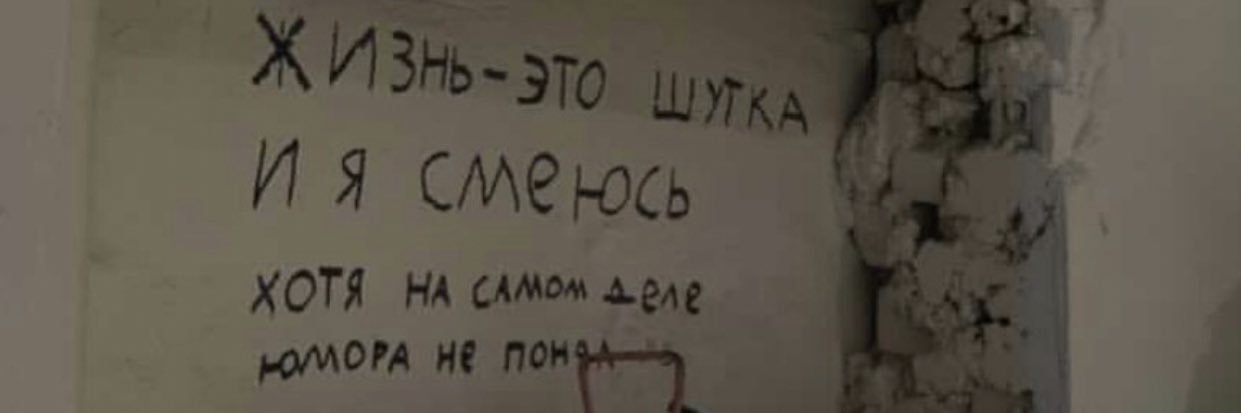 ЖИЗНЬ-ЭТО ШУТКА
И Я СМЕЮСЬ
ХОТЯ НА САМОМ ДЕЛЕ
ЮМОРА НЕ ПОНЯЛ